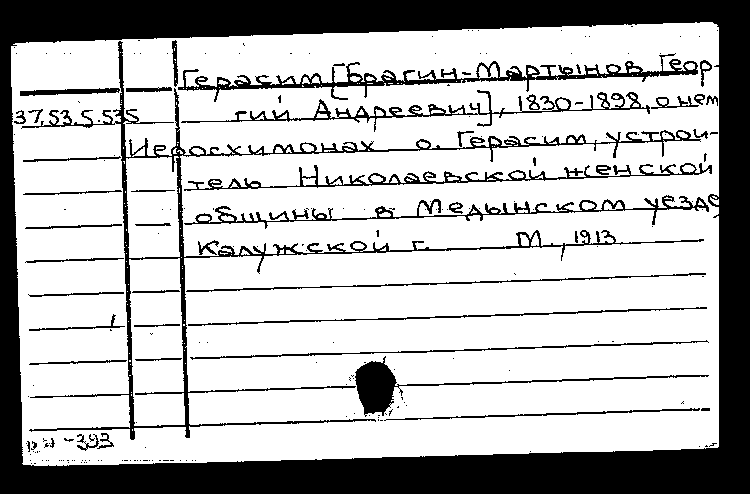 Герасим [Брагин-Мартынов, Геор-
37.53.5.535 гий Андреевич], 1830-1898, о нем
Иеросхимонах о. Герасим, устрои-
тель Николаевской женской
общины в Медынском уезде
Калужской г. М., 1913
1
-393